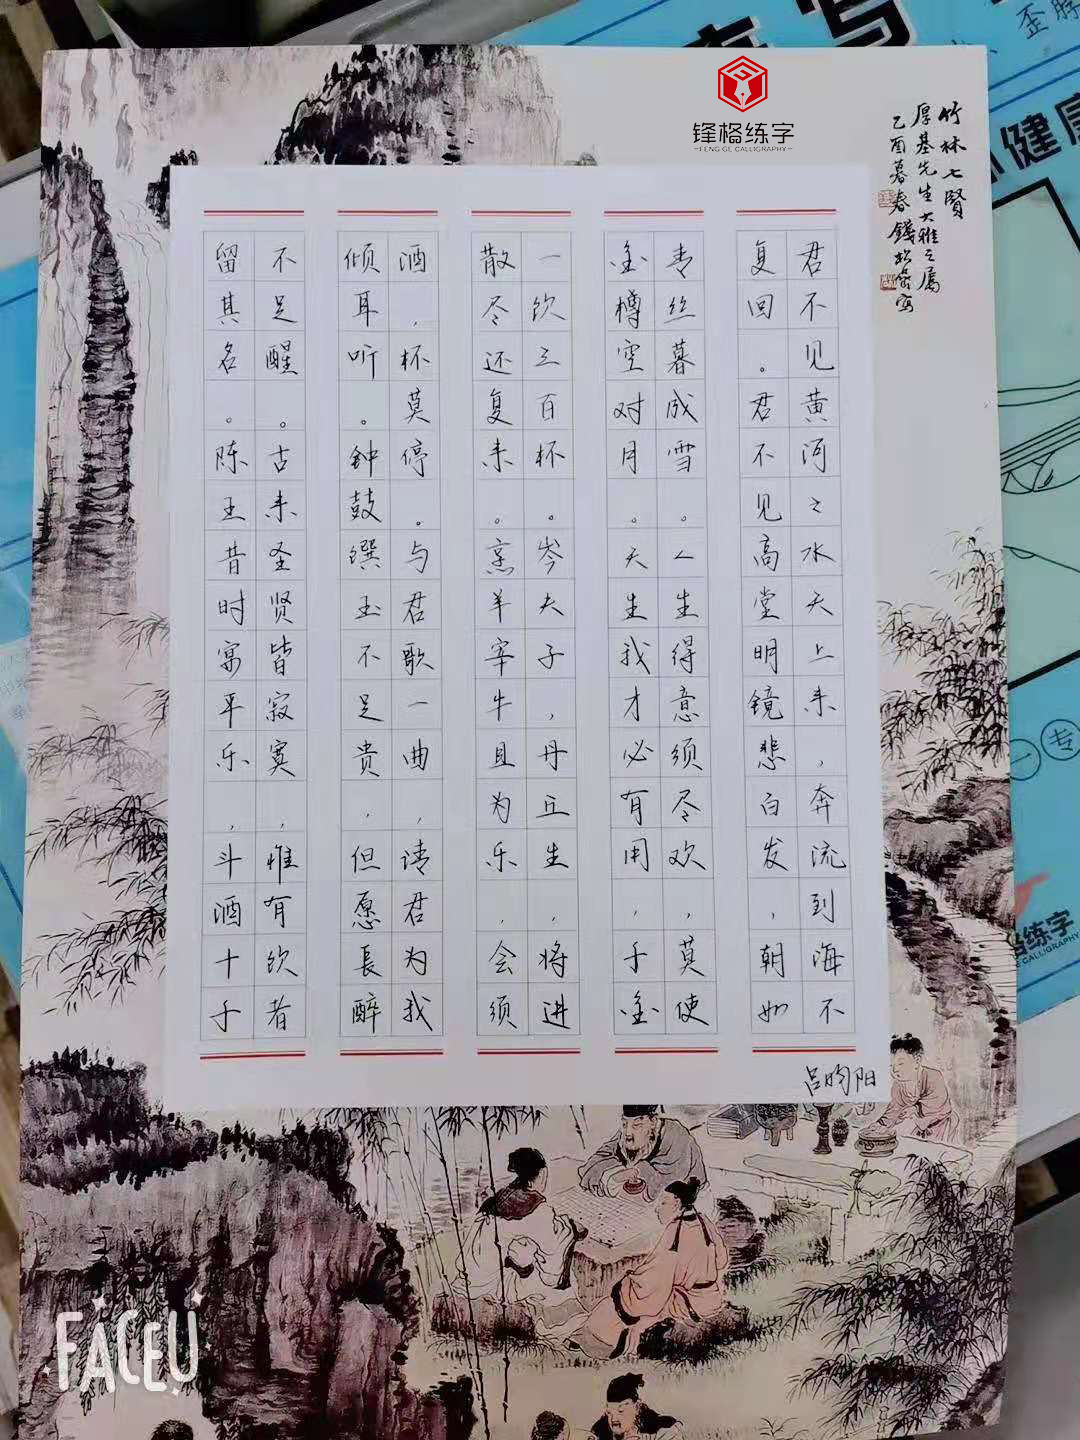 锋格练字
FENG GE CALLIGRAPHY
竹林七贤
厚基先生大雅之属
乙酉暮春钱松嵒写
君不见黄河之水天上来，奔流到海不
复回。君不见高堂明镜悲白发，朝如
青丝暮成雪。人生得意须尽欢，莫使
金樽空对月。天生我才必有用，千金
散尽还复来。烹羊宰牛且为乐，会须
一饮三百杯。岑夫子，丹丘生，将进
酒，杯莫停。与君歌一曲，请君为我
倾耳听。钟鼓馔玉不足贵，但愿長醉
不足醒。古来圣贤皆寂寞，惟有饮者
留其名。陈王昔时宴平乐，斗酒十千
吕昀阳
健康
一专
练字
CALLIGRAPHY
FACEU